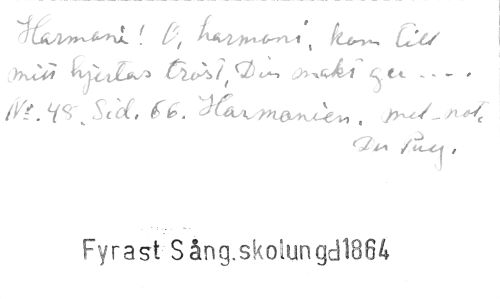 Harmoni! O, harmoni, kom till
mitt hjertas tröst, Din makt ger ....
No. 48. Sid. 66. Harmonien. med not.
Du Puy.
Fyrast Sång.skolungd1864